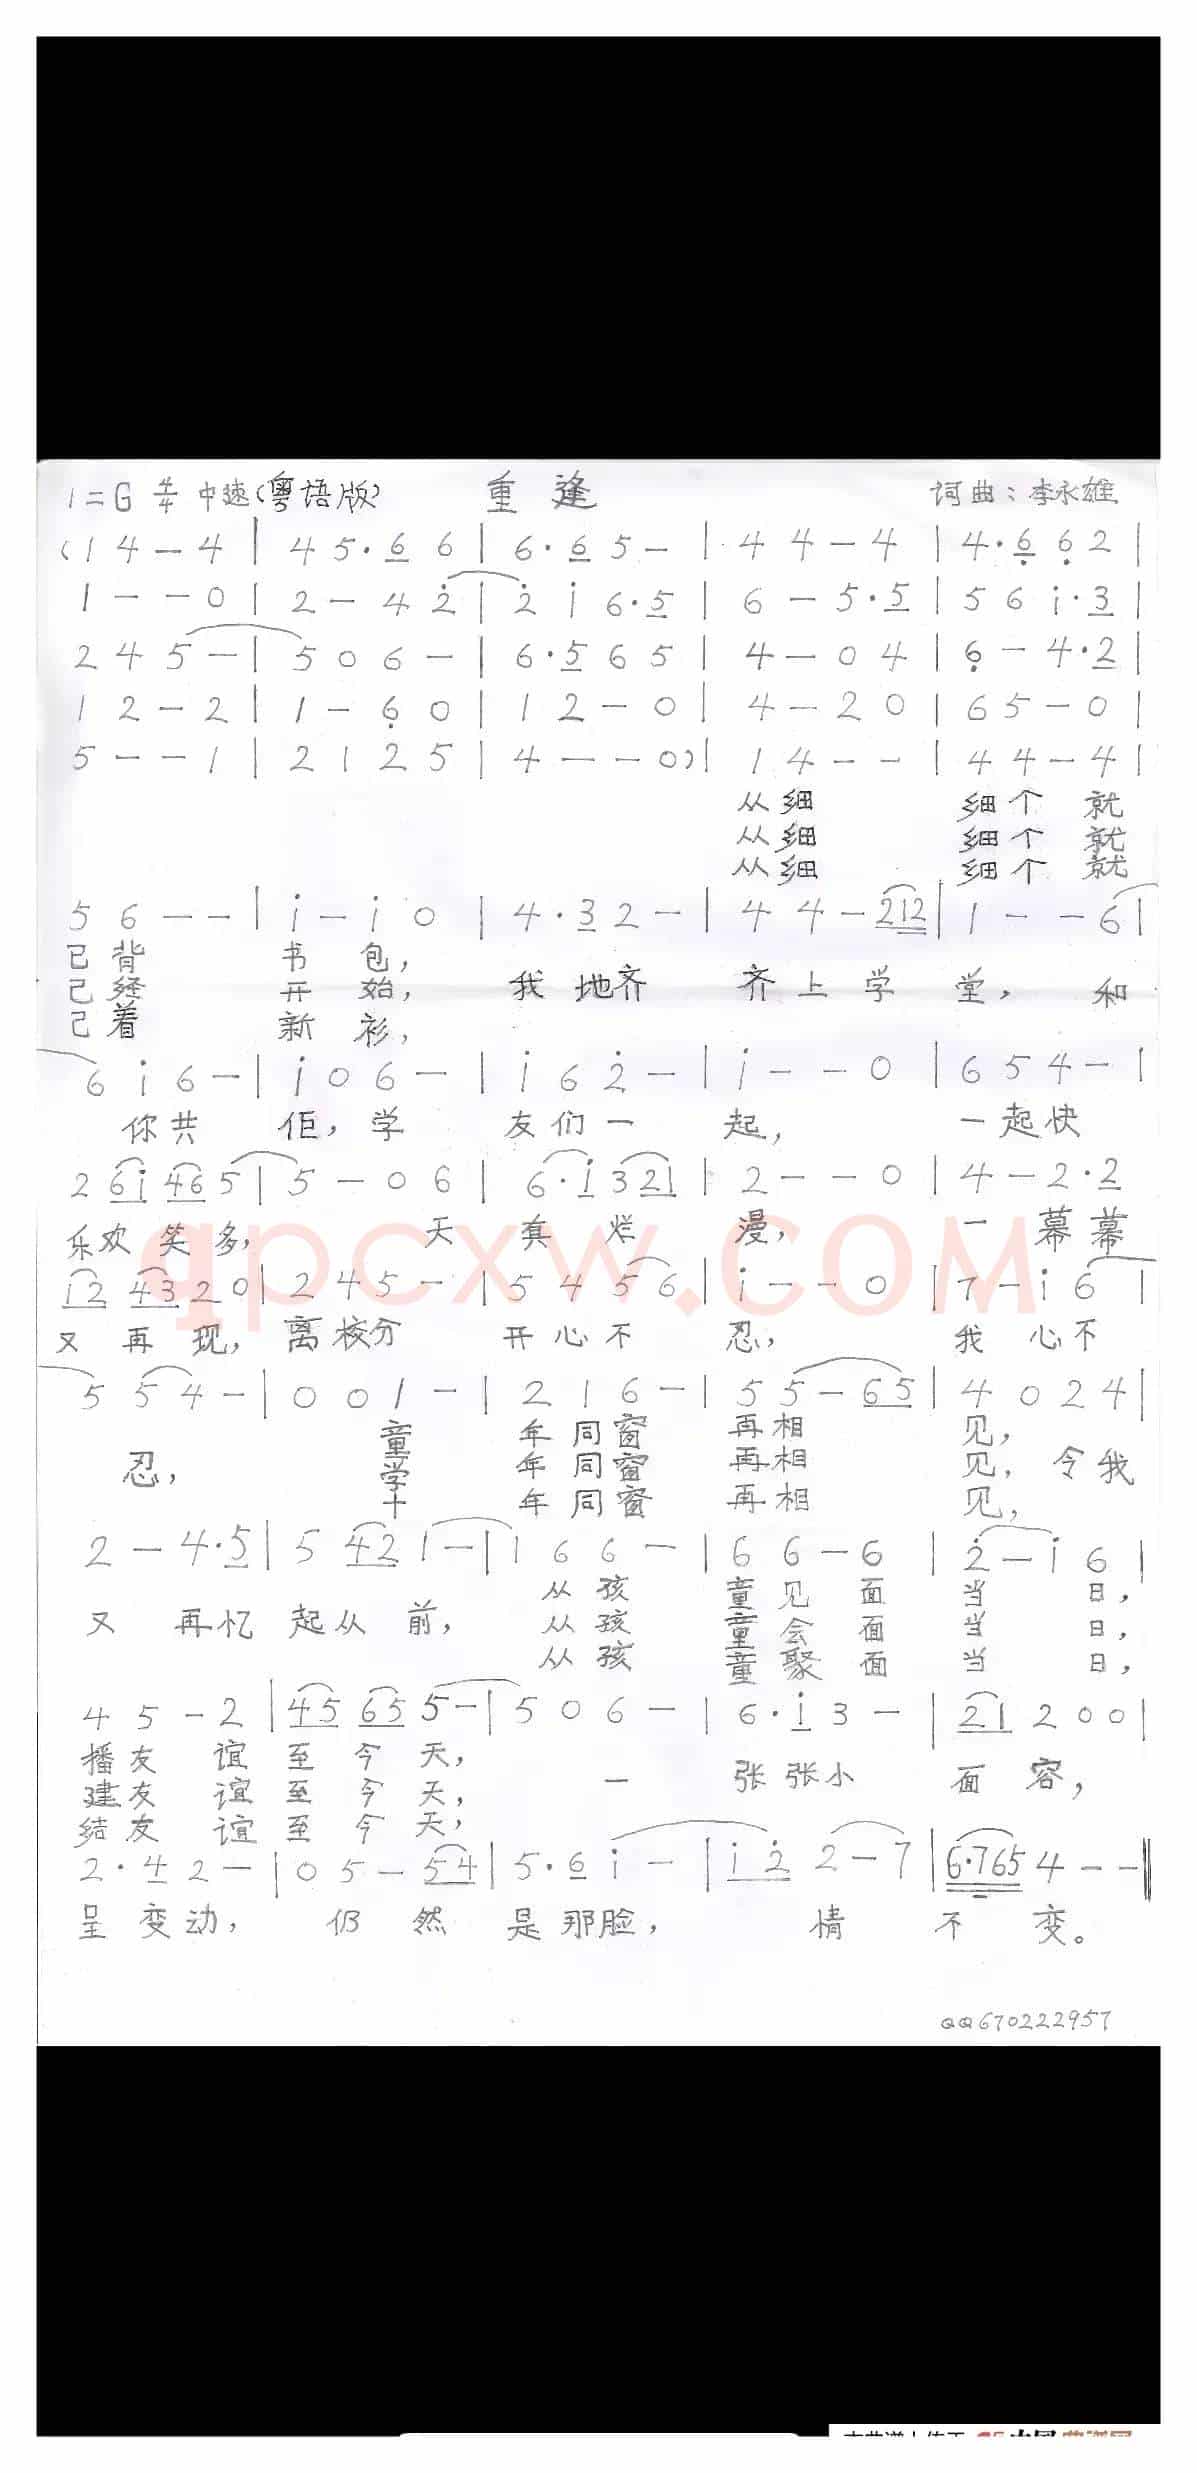 1=G 4/4 中速(粤语版) 重逢 词曲：李永雄
(1 4 — 4 | 4 5· 6 6 | 6· 6 5 — | 4 4 — 4 | 4· 6̣ 6̣ 2 |
1 — — 0 | 2 — 4 2̇ | 2̇ i 6·5 | 6 — 5·5 | 5 6 i·3 |
2 4 5 — | 5 0 6 — | 6·5 6 5 | 4 — 0 4 | 6̣ — 4·2 |
1 2 — 2 | 1 — 6̣ 0 | 1 2 — 0 | 4 — 2 0 | 6 5 — 0 |
5 — — 1 | 2 1 2 5 | 4 — — 0) | 1 4 — — | 4 4 — 4 |
从细 细个 就
从细 细个 就
从细 细个 就
5 6 — — | i — i 0 | 4·3 2 — | 4 4 — 212 | 1 — — 6 |
已背 书包，
已经 开始， 我地齐 齐上学 堂， 和
已着 新衫，
6 i 6 — | i 0 6 — | i 6 2̇ — | i — — 0 | 6 5 4 — |
你共 佢，学 友们一 起， 一起快
2 6i 46 5 | 5 — 0 6 | 6·i 3 21 | 2 — — 0 | 4 — 2·2 |
乐欢笑多， 天 真烂 漫， 一幕幕
12 43 2 0 | 2 4 5 — | 5 4 5 6 | i — — 0 | 7 — i 6 |
又再现， 离校分 开心不 忍， 我心不
5 5 4 — | 0 0 1 — | 2 1 6 — | 5 5 — 65 | 4 0 2 4 |
童 年同窗 再相 见，
忍， 学 年同窗 再相 见，令我
十 年同窗 再相 见，
2 — 4·5 | 5 42 1 — | 1 6 6 — | 6 6 — 6 | 2̇ — i 6 |
从孩 童见面 当日，
又再忆 起从前， 从孩 童会面 当日，
从孩 童聚面 当日，
4 5 — 2 | 45 65 5 — | 5 0 6 — | 6·i 3 — | 21 2 0 0 |
播友谊 至今天，
建友谊 至今天， 一 张张小 面容，
结友谊 至今天，
2·4 2 — | 0 5 — 54 | 5·6 i — | i 2̇ 2 — 7 | 6·765 4 — — ‖
呈变动， 仍然 是那脸， 情 不变。
QQ670222957
qpcxw.COM